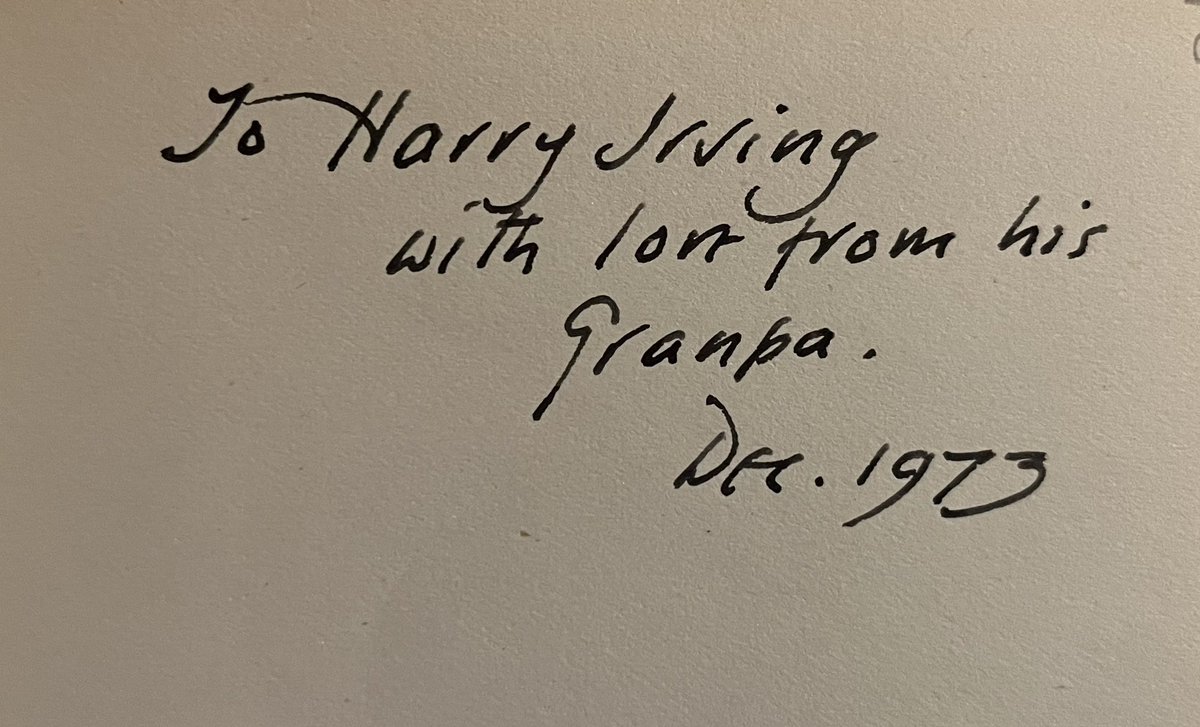 To Harry Irving
with love from his
Granpa.
Dec. 1973